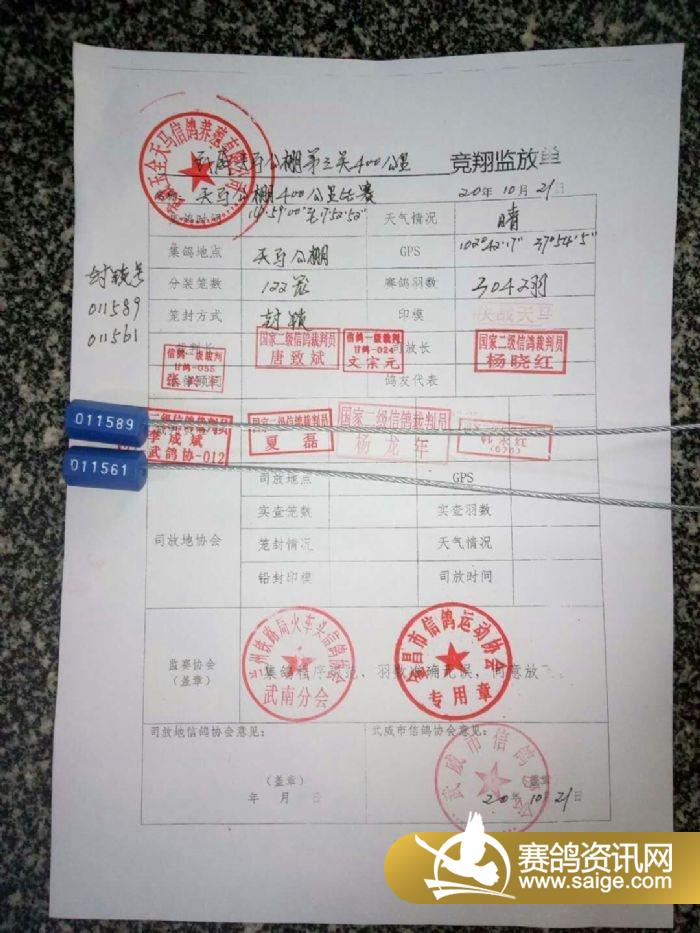 天马公棚第三关400公里 竞翔监放单
天马公棚400公里比赛 20年10月21日
集鸽时间 14:59'00"至17:52'52" 天气情况 晴
集鸽地点 天马公棚 GPS 102°42'17" 37°54'5"
封锁号
分装笼数 122笼 赛鸽羽数 3042羽
011589
笼封方式 封锁 印模 决战天马
011561
国家二级信鸽裁判员
唐致斌
信鸽一级裁判
甘鸽-024
文宗元
司放长
国家二级信鸽裁判员
杨晓红
信鸽一级裁判
甘鸽-055
鸽友代表
011589
二级信鸽裁判员
李成斌
武鸽协-012
国家二级信鸽裁判员
夏磊
国家二级信鸽裁判员
杨龙年
韩永红
011561
司放地协会
司放地点 GPS
实查笼数 实查羽数
笼封情况 天气情况
铅封印模 司放时间
监赛协会
(盖章)
集鸽程序规范,羽数准确无误,同意放飞
兰州铁路局火车头信鸽协会
武南分会
金昌市信鸽运动协会
专用章
司放地信鸽协会意见: 武威市信鸽协会意见:
武威市信鸽协会
(盖章) (盖章)
年 月 日 20年10月21日
赛鸽资讯网
www.saige.com